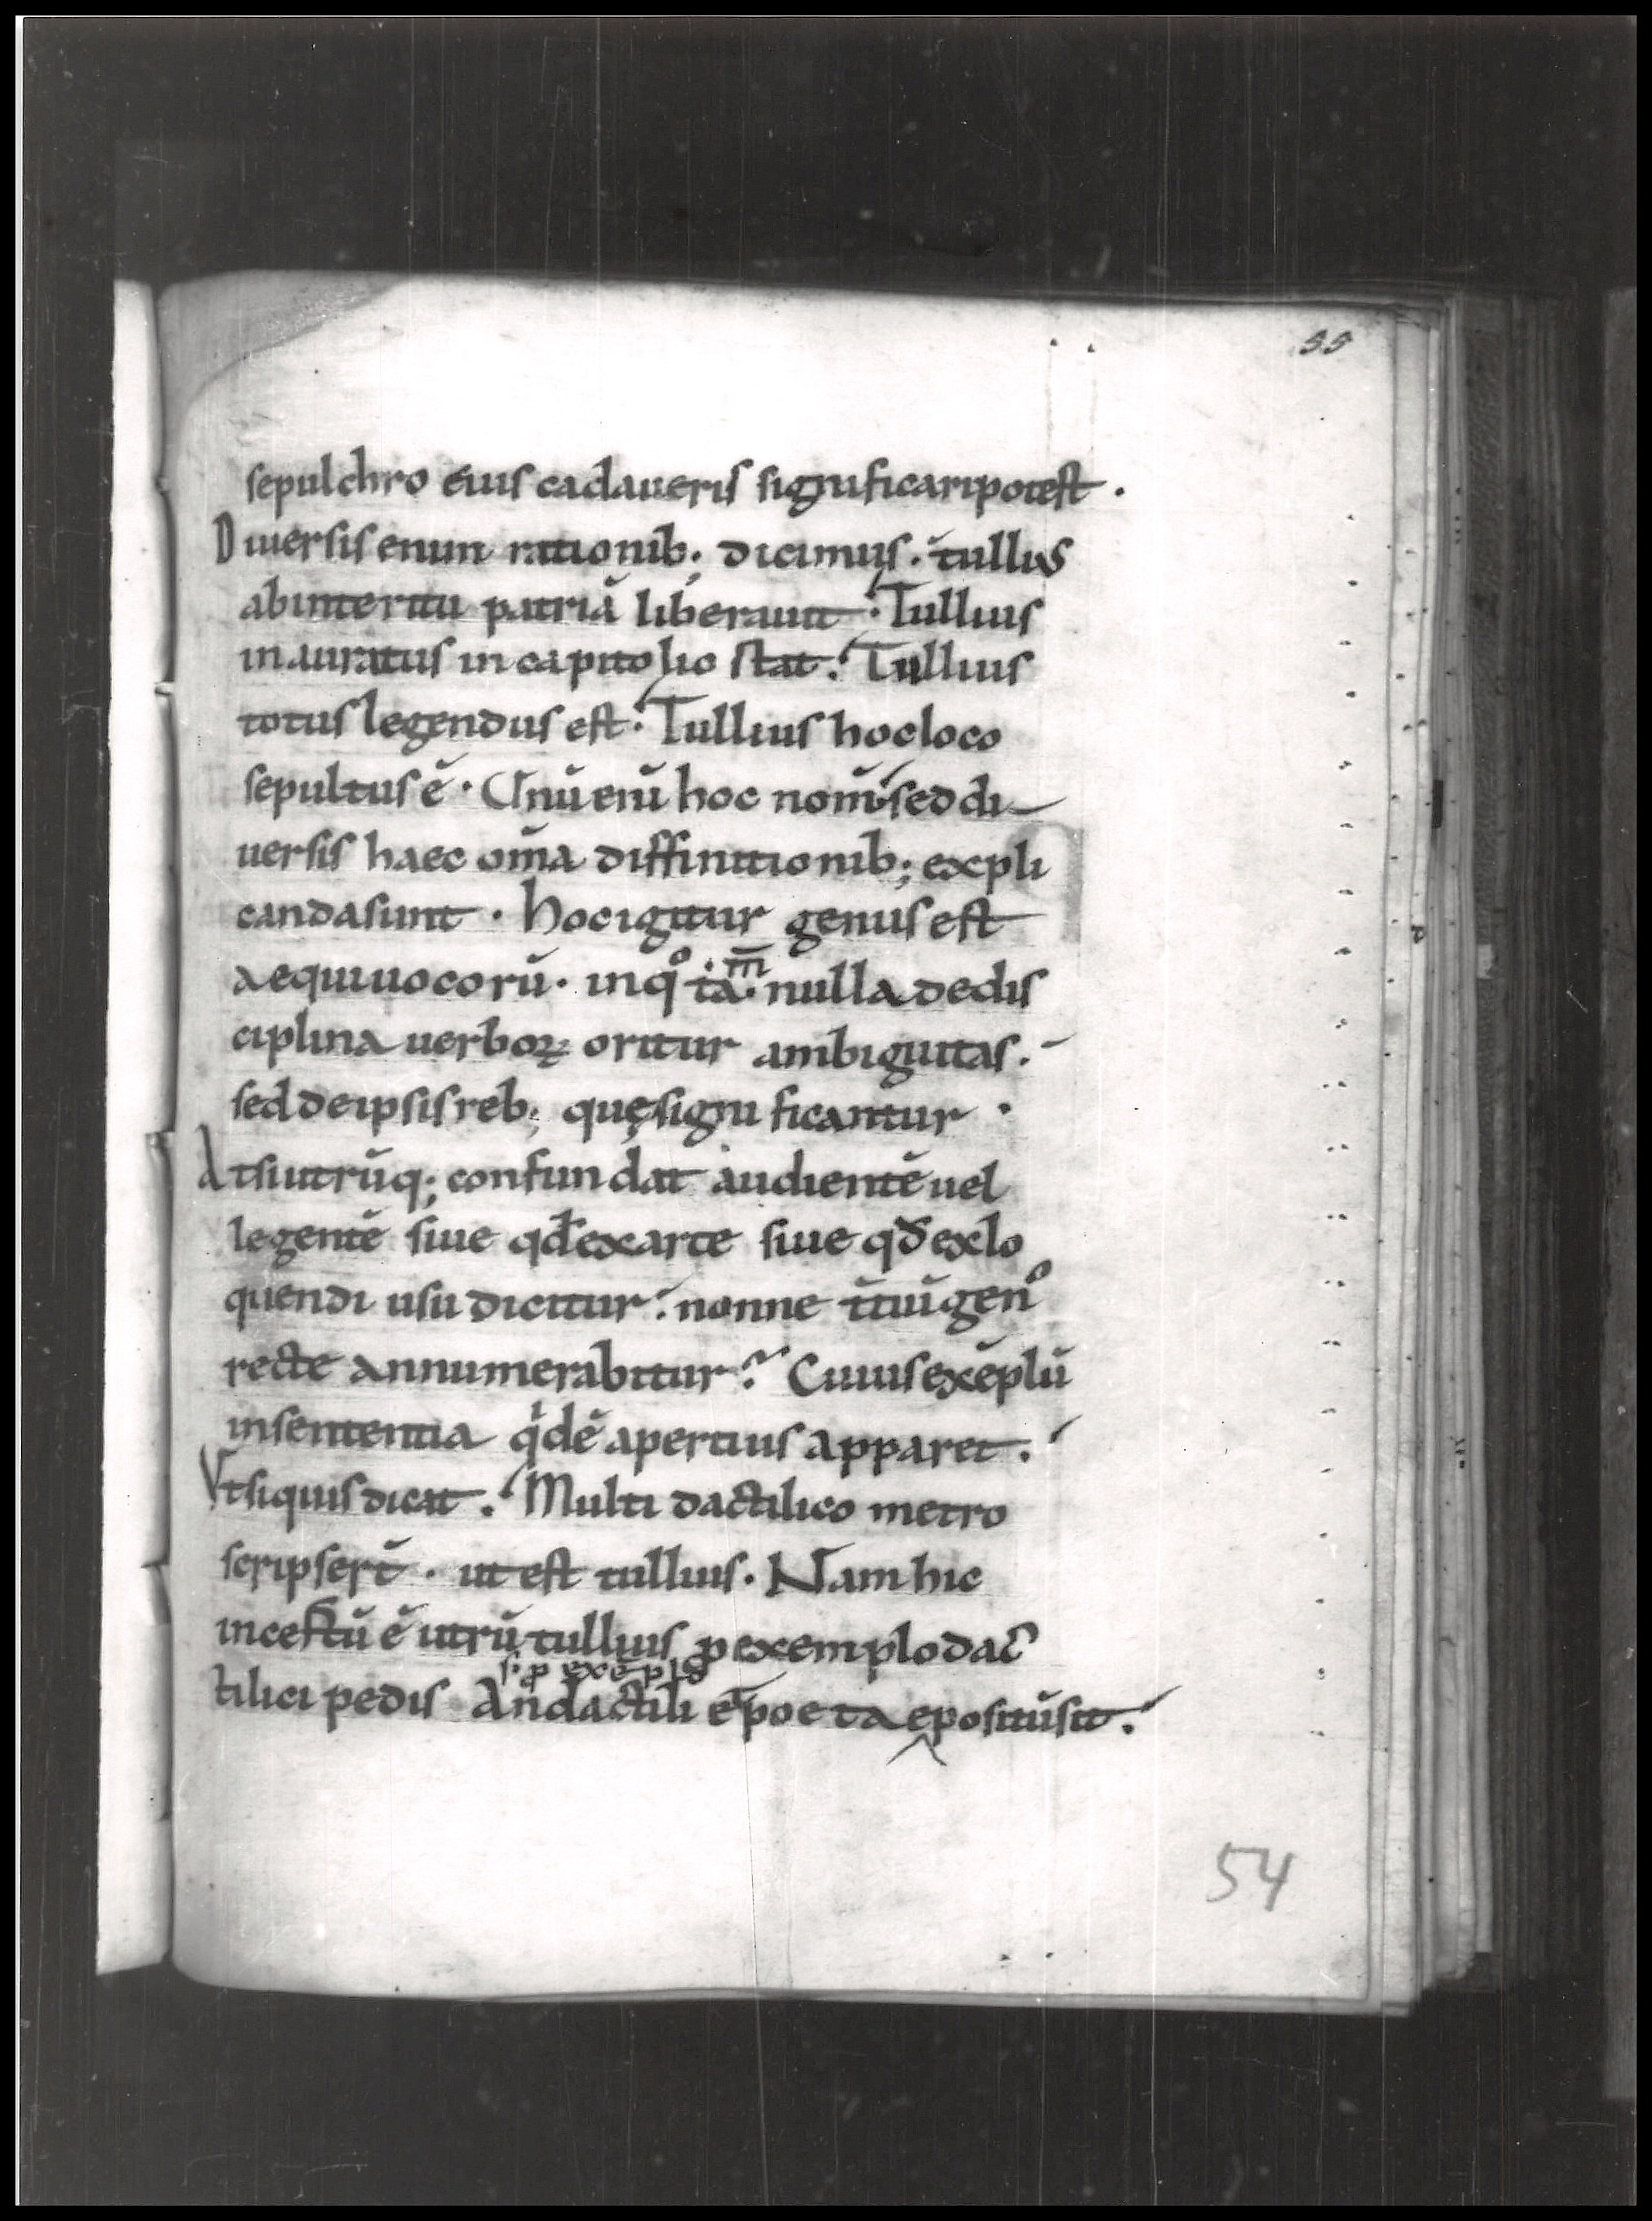 55
sepulchro eius cadaueris significaripotest .
Diuersisenim rationib; dicimus. tullius
abinteritu patriā liberauit . Tullius
inauratus incapitolio stat. Tullius
totuslegendus est. Tullius hocloco
sepultus ē . Unū enī hoc nom̄ seddi
uersis haec om̄a diffinitionib; expli
candasunt . hocigitur genusest
aequiuocorū . inqͦ tam̄ . nulla dedis
ciplina uerboꝝ oritur ambiguitas .
seddeipsisreb; quęsignificantur .
Atsiutrūq; confundat audientē uel
legentē siue qđexarte siue qđexlo
quendi usu dicitur . nonne t̄ciūgenͦ
recte annumerabitur ? Cuiusexēplū
insententia qͥdē apertius apparet .
Vtsiquisdicat . Multi dactilico metro
scripser̄t . ut est tullius . Nam hic
incertū ē utrū tullius ꝓ exemplo dac
si ꝓ exēplo
tilici pedis An dactili ci poeta epositūsit .
54